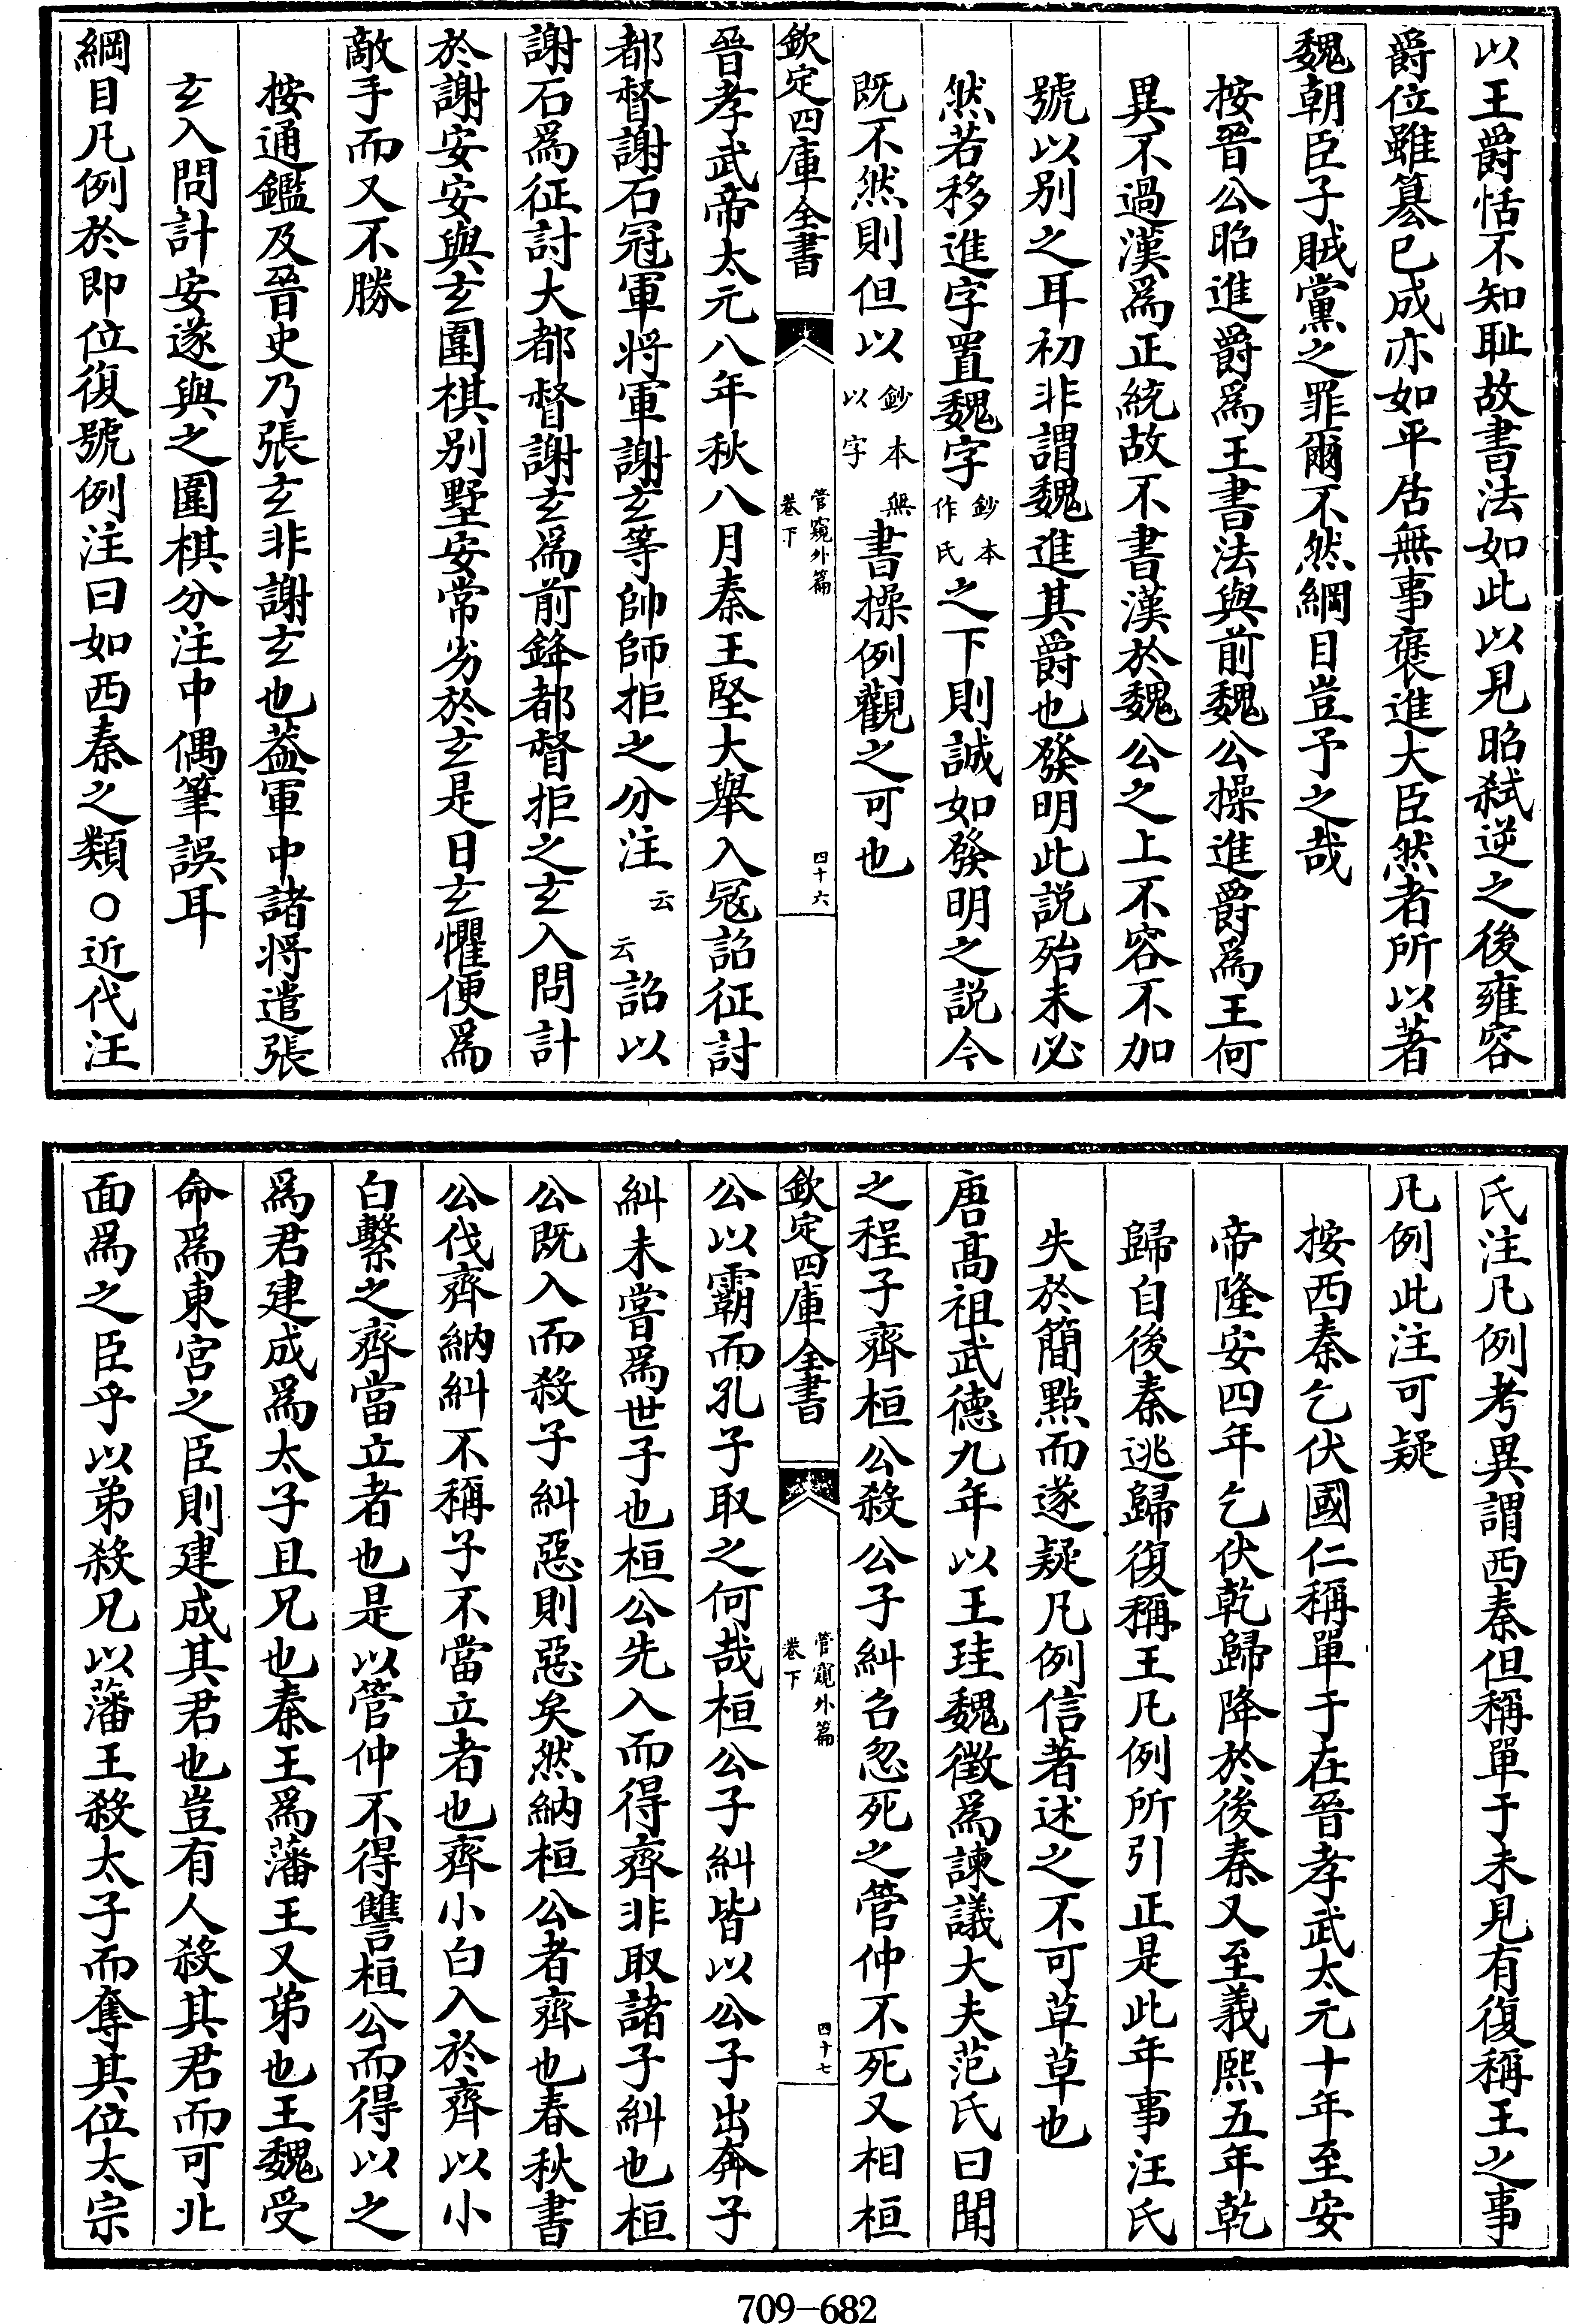 以王爵恬不知耻故書法如此以見昭弑逆之後雍容
爵位雖篡已成亦如平居無事褒進大臣然者所以著
魏朝臣子賊黨之罪爾不然綱目豈予之哉
按晉公昭進爵爲王書法與前魏公操進爵爲王何
異不過漢爲正統故不書漢於魏公之上不容不加
號以别之耳初非謂魏進其爵也發明此説殆未必
然若移進字置魏字鈔本作氏之下則誠如發明之説今
既不然則但以鈔本無以字書操例觀之可也
欽定四庫全書 管窺外篇 卷下 四十六
晉孝武帝太元八年秋八月秦王堅大舉入冦詔征討
都督謝石冠軍將軍謝玄等帥師拒之分注云云詔以
謝石爲征討大都督謝玄爲前鋒都督拒之玄入問計
於謝安安與玄圍棋别墅安常劣於玄是日玄懼便爲
敵手而又不勝
按通鑑及晉史乃張玄非謝玄也葢軍中諸將遣張
玄入問計安遂與之圍棋分注中偶筆誤耳
綱目凡例於即位復號例注曰如西秦之類○近代汪
氏注凡例考異謂西秦但稱單于未見有復稱王之事
凡例此注可疑
按西秦乞伏國仁稱單于在晉孝武太元十年至安
帝隆安四年乞伏乾歸降於後秦又至義熙五年乾
歸自後秦逃歸復稱王凡例所引正是此年事汪氏
失於簡點而遂疑凡例信著述之不可草草也
唐髙祖武德九年以王珪魏徵爲諫議大夫范氏曰聞
之程子齊桓公殺公子糾召忽死之管仲不死又相桓
欽定四庫全書 管窺外篇 卷下 四十七
公以霸而孔子取之何哉桓公子糾皆以公子出奔子
糾未嘗爲世子也桓公先入而得齊非取諸子糾也桓
公既入而殺子糾惡則惡矣然納桓公者齊也春秋書
公伐齊納糾不稱子不當立者也齊小白入於齊以小
白繫之齊當立者也是以管仲不得讐桓公而得以之
爲君建成爲太子且兄也秦王爲藩王又弟也王魏受
命爲東宮之臣則建成其君也豈有人殺其君而可北
面爲之臣乎以弟殺兄以藩王殺太子而奪其位太宗
709-682